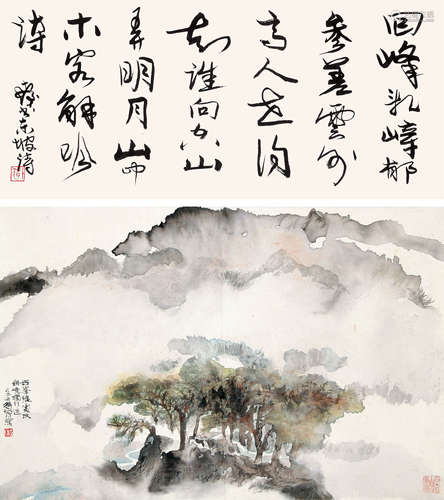 回峰乱嶂郁
参差雲外
高人世得
知谁向空山
弄明月山中
木客解吟
诗
东坡诗